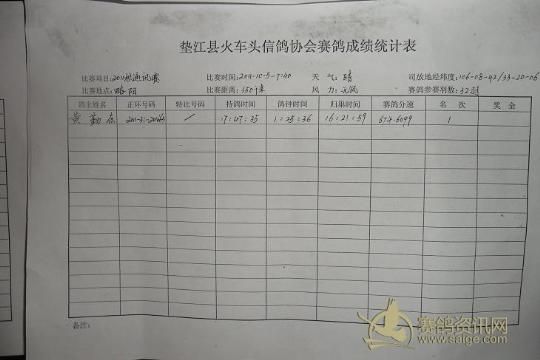 垫江县火车头信鸽协会赛鸽成绩统计表
比赛项目: 比赛时间:2011-10-5-7:40 天 气:晴 司放地经纬度:106-08-42/33-20-06
比赛地点:略阳 比赛距离: 风 力:无风 赛鸽参赛羽数:32羽
鸽主姓名 正环号码 特比号码 持鸽时间 鸽钟时间 归巢时间 赛鸽分速 名 次 奖 金
黄 / 17:47:35 1:25:36 16:21:59 1
备注:
赛鸽资讯网
www.saige.com